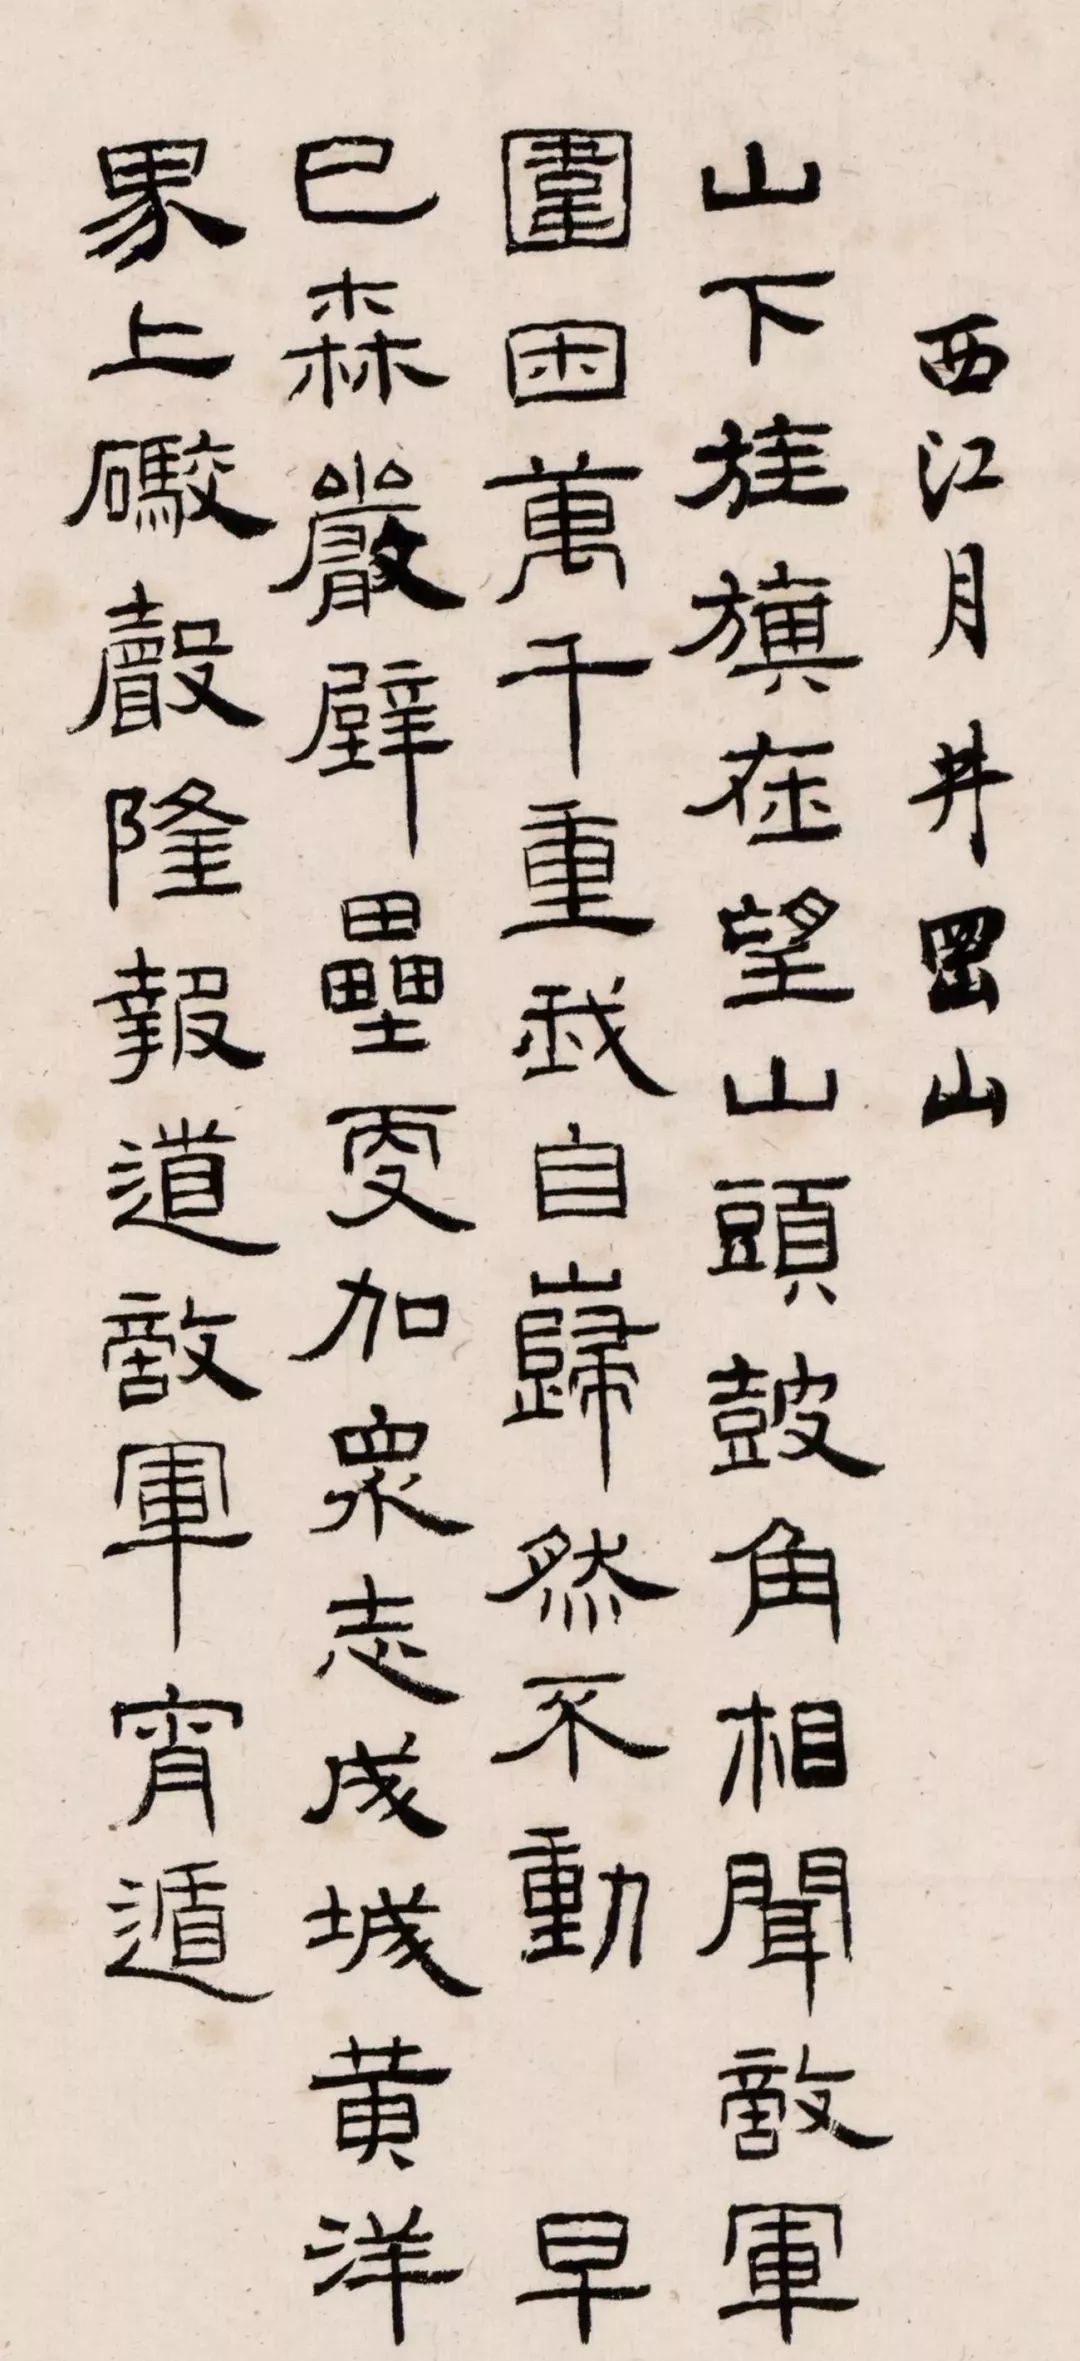 西江月 井岡山
山下旌旗在望山頭鼓角相聞敵軍
圍困萬千重我自巋然不動 早
已森嚴壁壘更加眾志成城黃洋
界上礮聲隆報道敵軍宵遁